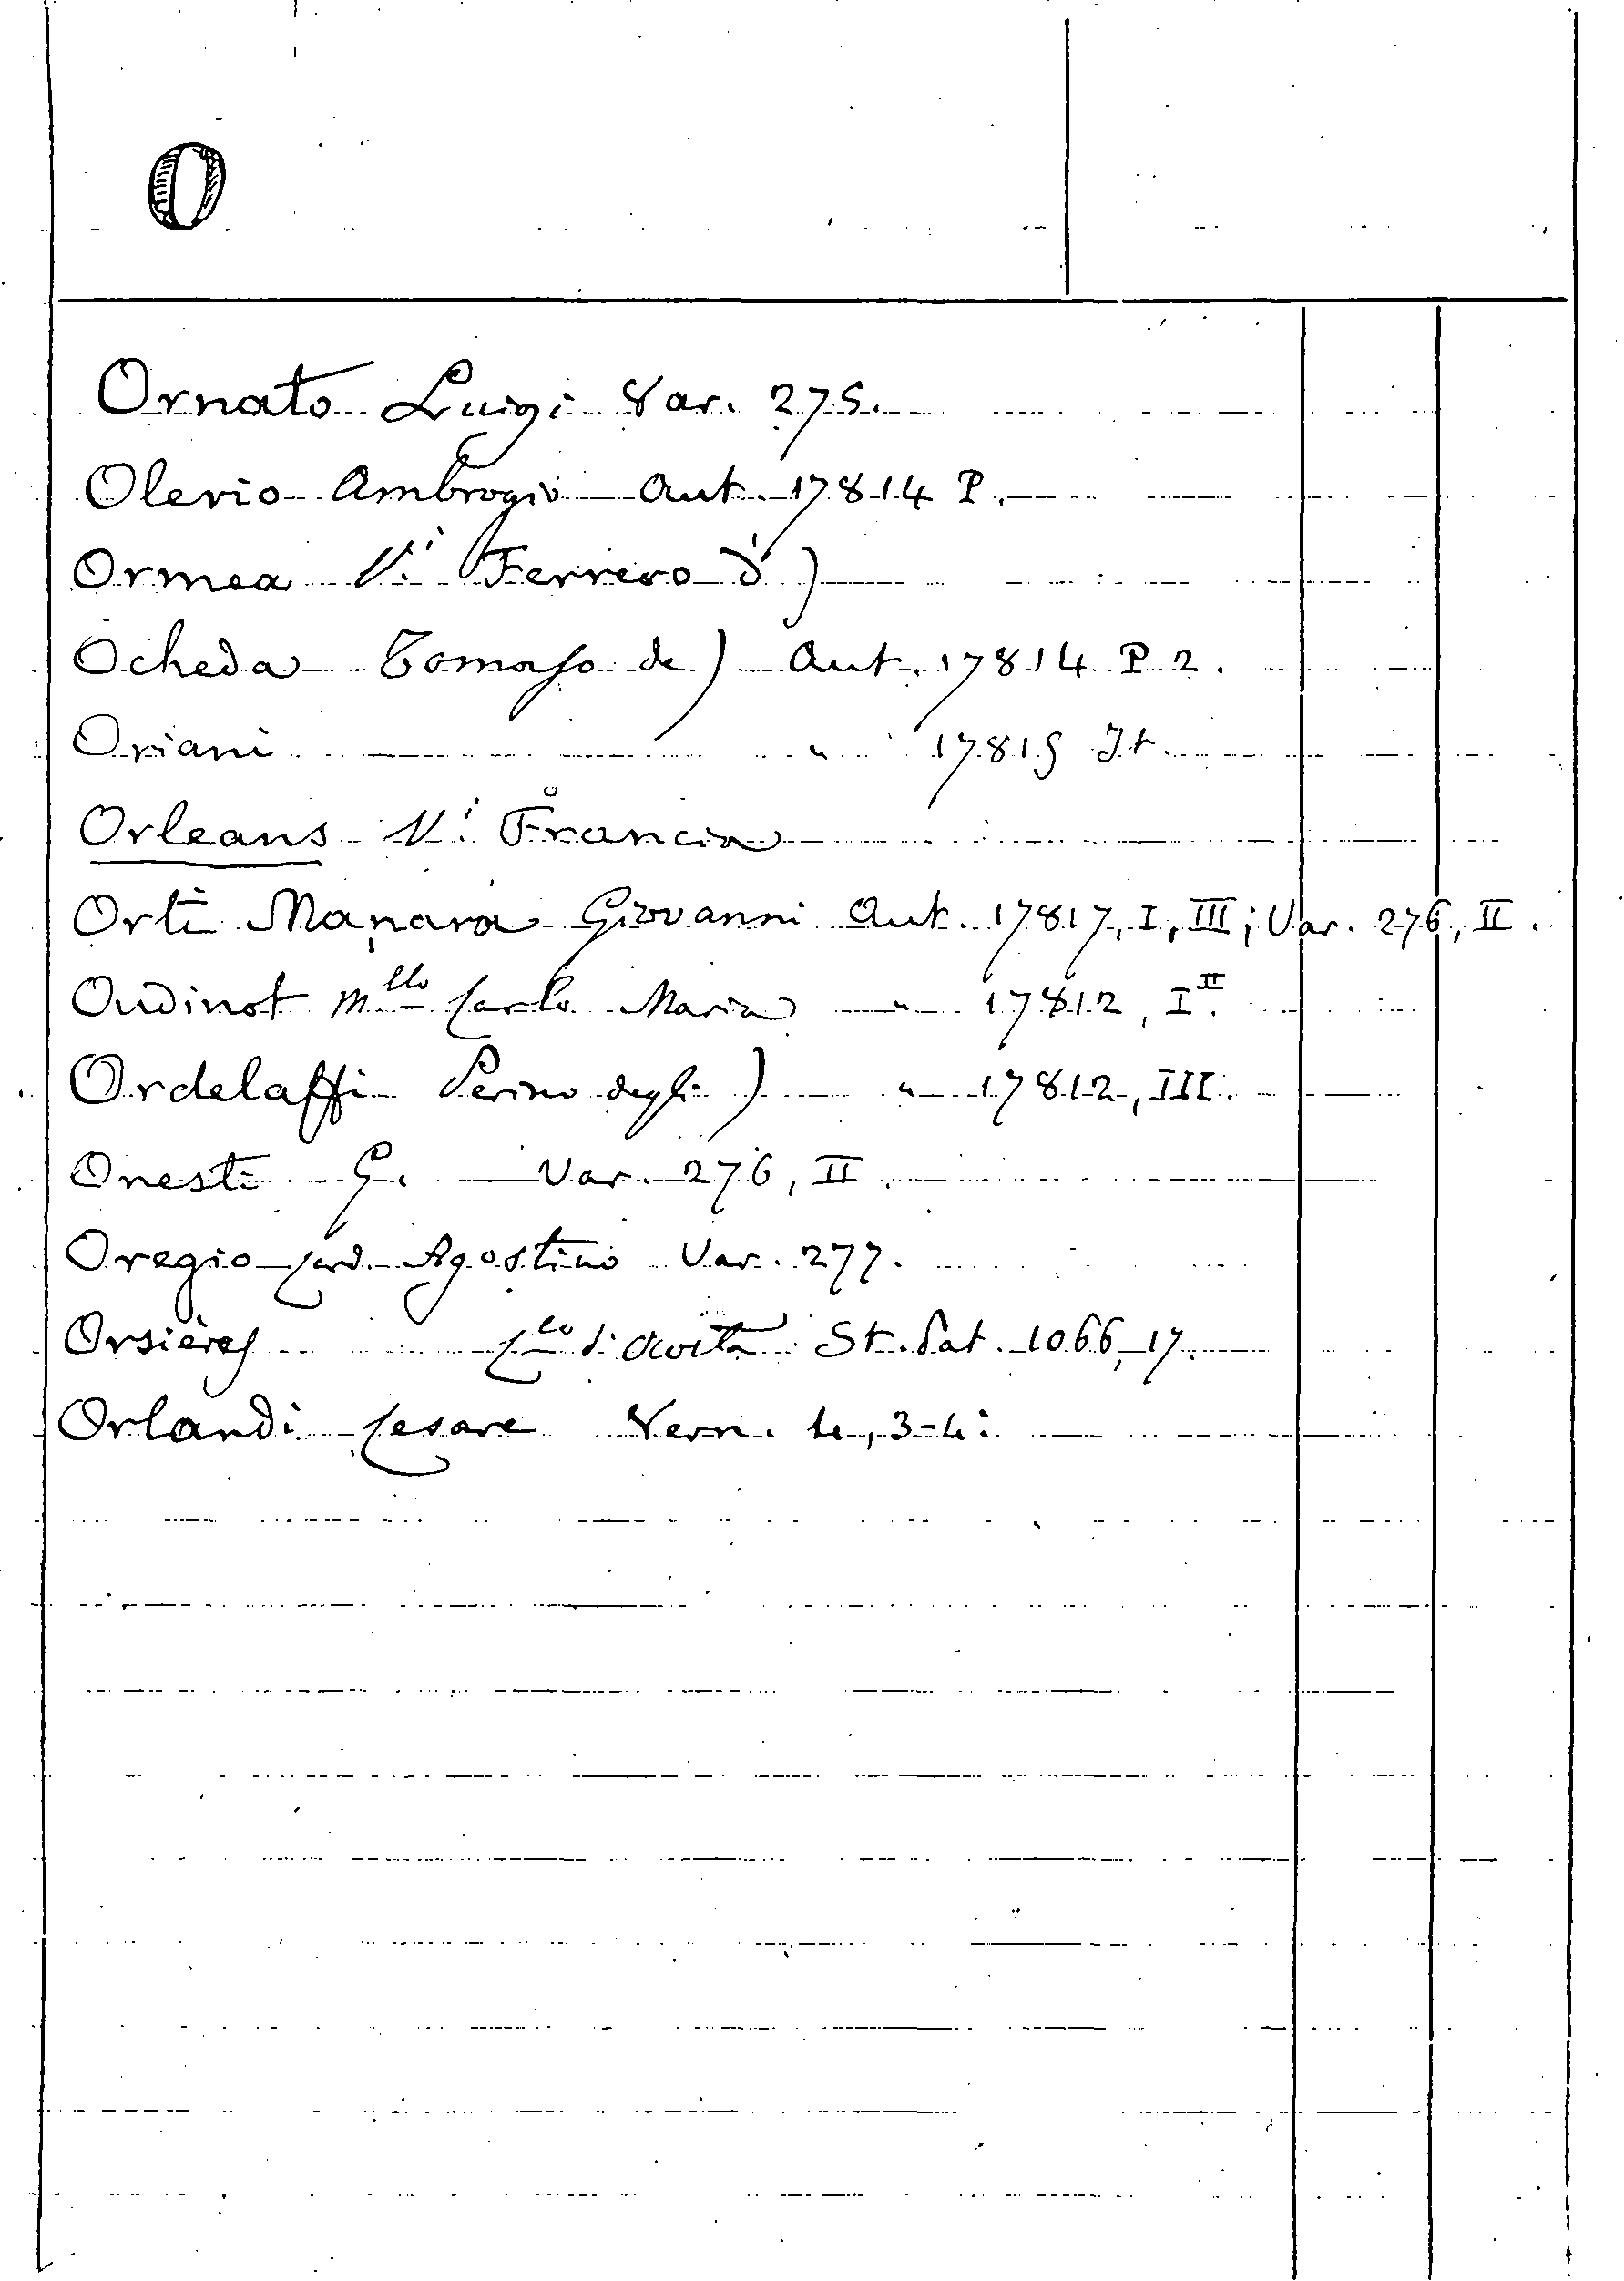 O
Ornato Luigi Var. 275.
Olevio Ambrogio Aut. 17814 P.
Ormea V.i Ferrero d')
Ocheda Tomaso de) Aut. 17814 P 2.
Oriani " 17815 It.
Orleans V.i Francia
Orti Manara Giovanni Aut. 17817, I, III; Var. 276, II.
Oudinot Mllo Carlo Maria " 17812, I II.
Ordelaffi Perino degli) " 17812, III.
Onesti G. Var. 276, II.
Oregio Card. Agostino Var. 277.
Orsières d'Aosta St. Pat. 1066, 17.
Orlandi Cesare Vern. 4, 3-4.